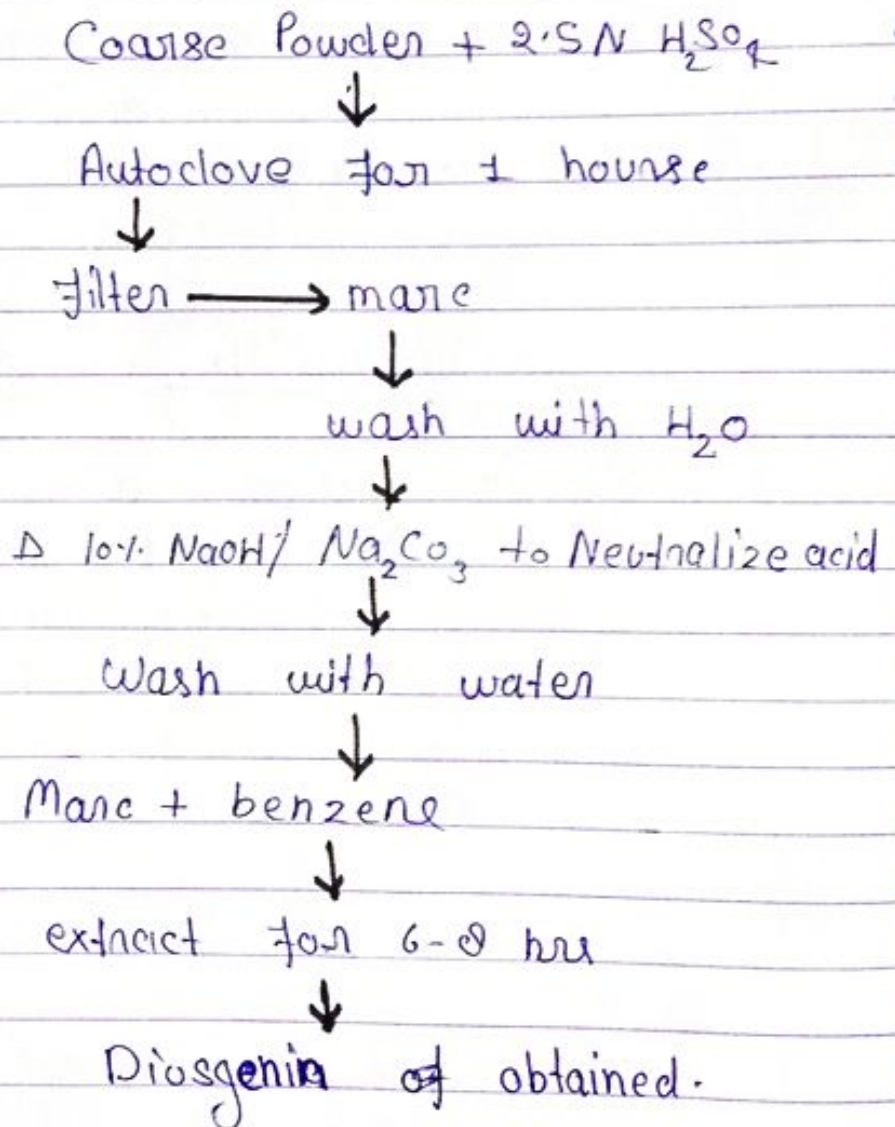 Coarse Powder + 2.5N H₂SO₄
Autoclove for 1 hourse
Filter → marc
wash with H₂O
Δ 10% NaOH / Na₂Co₃ to Neutralize acid
Wash with water
Marc + benzene
extract for 6-8 hrs
Diosgenin of obtained.